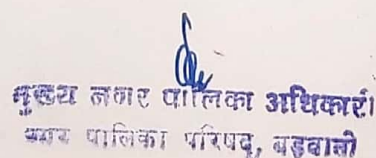 मुख्य नगर पालिका अधिकारी
नगर पालिका परिषद, बड़वानी